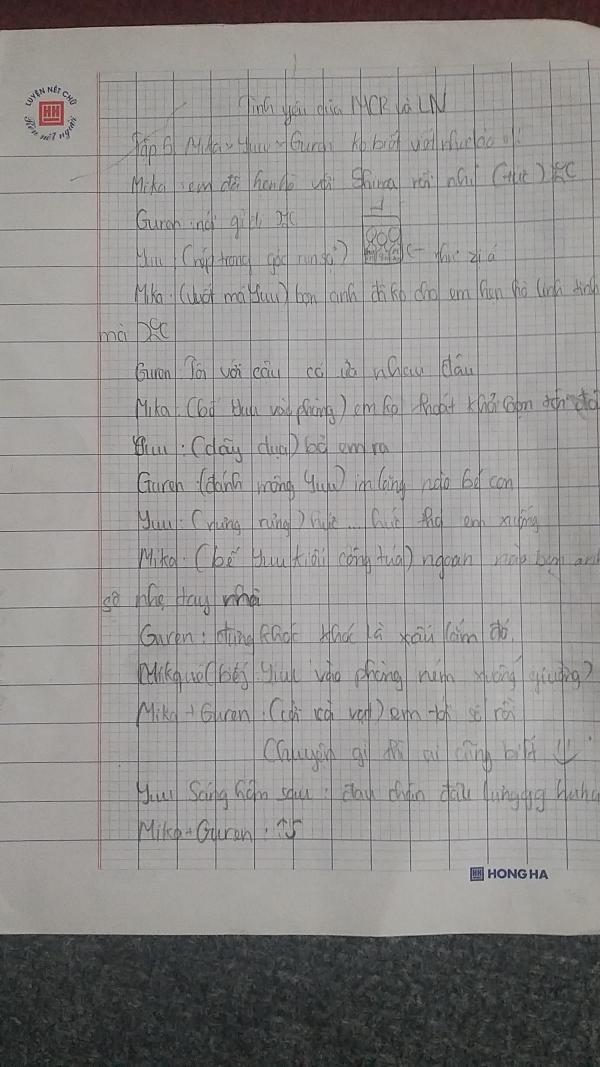 LUYỆN NÉT CHỮ
HH
Rèn nết người
Tình yêu của MCR và LN
Tập 5 Mika x Yuu x Guren ko biết với
Mika: em đã hẹn hò với Shinoa rồi nhỉ
Guren: nói gì đi
Yuu: (núp trong góc run sợ)
Mika: (vuốt má Yuu) bọn anh đã ko cho em hẹn hò linh tinh
mà
Guren: Tôi với cậu có ưa nhau đâu
Mika: (bế Yuu vào phòng) em ko thoát khỏi bọn tôi đâu
Yuu: (dãy dụa) bỏ em ra
Guren: (đánh mông Yuu) im lặng nào bé con
Yuu: (rưng rưng) hức... hức thả em xuống
Mika: (bế Yuu kiểu công túa) ngoan nào bọn anh
sẽ nhẹ tay nhá
Guren: đừng khóc khóc là xấu lắm đó
(bế Yuu vào phòng ném xuống giường)
Mika + Guren: (cởi cà vạt) em tới số rồi
(chuyện gì thì ai cũng biết
Yuu Sáng hôm sau: đau chân đau lưngggg
Mika + Guren:
HH HONG HA